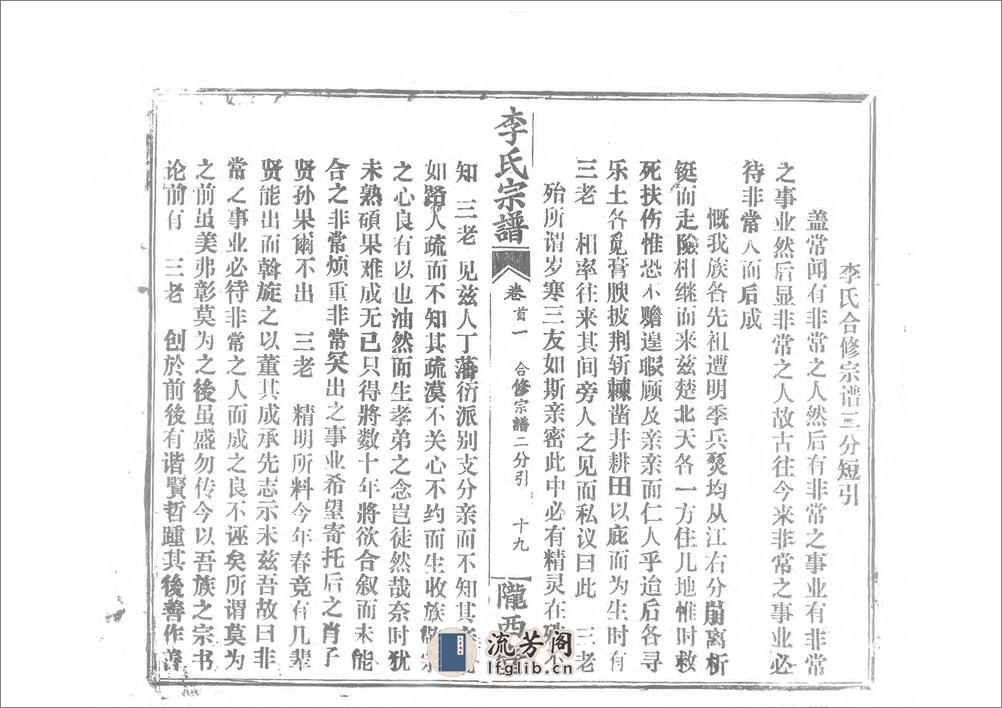 李氏合修宗谱三分短引
盖常闻有非常之人然后有非常之事业有非常
之事业然后显非常之人故古往今来非常之事业必
待非常人而后成
慨我族各先祖遭明季兵燹均从江右分崩离析
铤而走險相继而来兹楚北天各一方住几地惟时救
死扶伤惟恐不赡遑暇顾及亲亲而仁人乎迨后各寻
乐土各觅膏腴披荆斩棘凿井耕田以庇而为生时有
三老 相率往来其间旁人之见而私议曰此 三老
殆所谓岁寒三友如斯亲密此中必有精灵在
李氏宗譜
卷首一 合修宗譜二分引 十九
隴西
知 三老 见兹人丁藩衍派别支分亲而不知其
如路人疏而不知其疏漠不关心不约而生收族
之心良有以也油然而生孝弟之念岂徒然哉奈时犹
未熟碩果难成无已只得將数十年將欲合叙而未能
合之非常烦重非常突出之事业希望寄托后之肖子
贤孙果爾不出 三老 精明所料今年春竞有几辈
贤能出而斡旋之以董其成承先志示未兹吾故曰非
常之事业必待非常之人而成之良不诬矣所谓莫为
之前虽美弗彰莫为之後虽盛勿传今以吾族之宗书
论前有 三老 创於前後有谐賢哲踵其後善作善
流芳阁
lfglib.cn